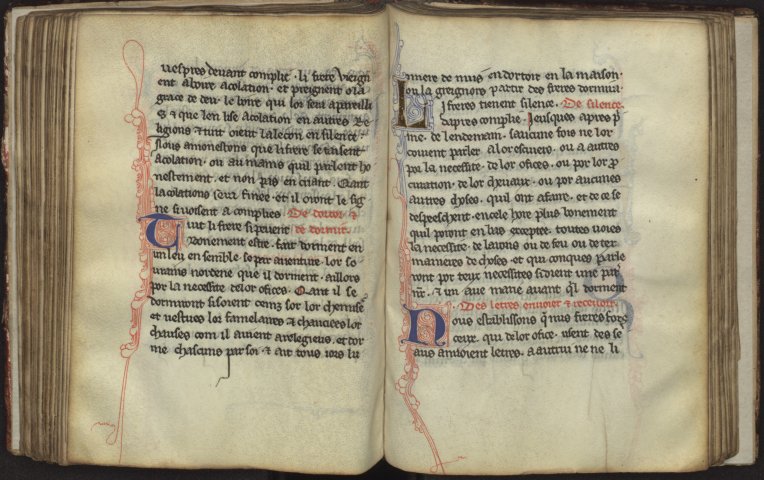 vespres devant complie · li frere vieignent
ent a boire acolation · et preignent o la
grace de deu · le boire qui lor sera apareilli
ez · & que l'en lise acolation en autres Re
ligions · & tuit oient la lecon en silence ·
Nous amonestons que li frere se taisent
acolation · ou au mains quil parlent ho
nestement · et non pas en criant · Qant
la colations sera finee · et il oront le sig
ne si voisent a complies De dortor &
Tuit li frere si puent de dormir
bonement estre · fait dorment en
un leu en semble · se par aventure · lor so
verains nordene que il dorment · aillors
por la necessite de lor offices · Qant il se
dormiront si soient ceinz sor lor chemise
et vestues lor famelaires & chaucees lor
chauses com il avient a relegieus · et dor
me chascuns par soi · & ait tous iors lu
mere de nuis en dortoir en la maison ·
ou la greignors partir des freres dormira
Li freres tienent silence · De silence
dapres complie · Jeusques apres p
me · de lendemain · saucune fois ne lor
covient parler a lor escuiers · ou a autres
por la necessite · de lor offices · ou por lor p
curation · de lor chevaux · ou por aucunes
autres choses · quil ont a faire · et de ce se
despeechent · en cele hore plus bonement
quil poront en bas · excepte · toutes voies
la necessite · de larons ou de feu ou de tex
manieres de choses · et qui conques parle
ront por teux necessites si dient une pat
nr · & un ave marie avant ql dorment
Des letres envoier & recevoir ·
Nous establissons q nus freres fors
ceux · qui de lor office · usent des se
aus anvoient letres · a autrui ne ne li